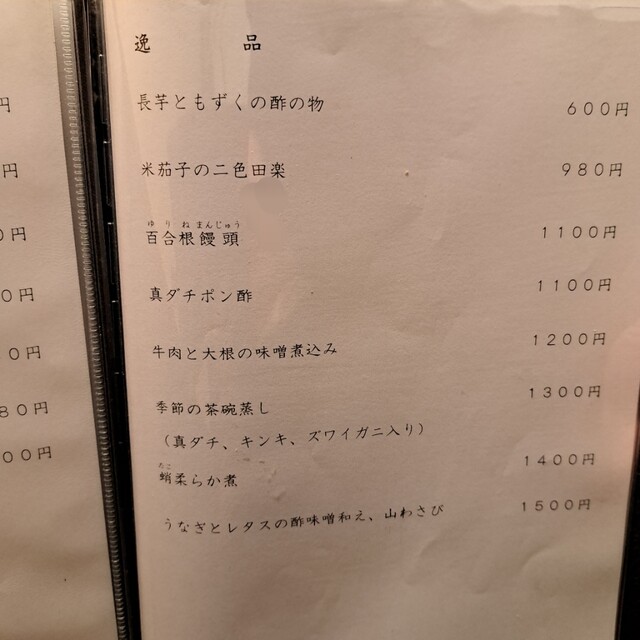 円
円
0円
0円
0円
80円
00円
逸品
長芋ともずくの酢の物 600円
米茄子の二色田楽 980円
ゆりねまんじゅう
百合根饅頭 1100円
真ダチポン酢 1100円
牛肉と大根の味噌煮込み 1200円
季節の茶碗蒸し 1300円
(真ダチ、キンキ、ズワイガニ入り)
たこ
蛸柔らか煮 1400円
うなぎとレタスの酢味噌和え、山わさび 1500円